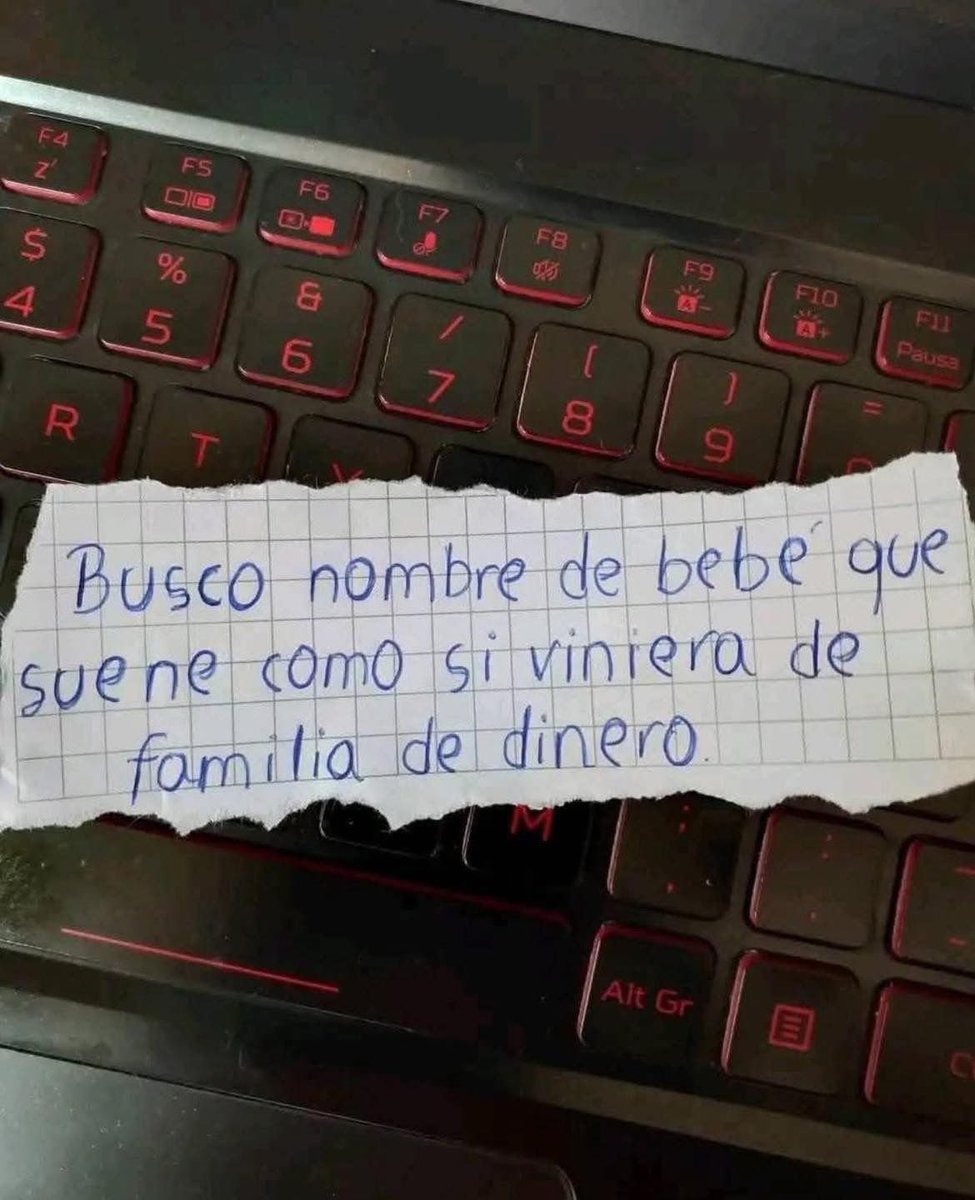 F4
z'
F5
F6
F7
F8
F9
A-
F10
A+
F11
Pausa
$
4
%
5
&
6
/
7
(
8
)
9
=
R
T
Busco nombre de bebé que
suene como si viniera de
familia de dinero.
M
;
,
:
.
Alt Gr